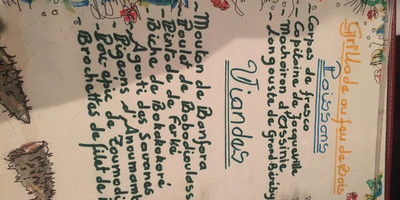 Grillade au feu de Bois
Poissons
- Carpes de fresco
- Capitaine de Jacqueville
- Machoiron d'Assinie
- Langouste de Grand Béréby
Viandes
- Mouton de Banfora
- Poulet de Bobodioulass
- Pintade de Ferké
- Biche de Bokakokoré
- Agouti des Savanes
- Pigeons d'Anoumam
- Porc-epic de
Brochettes de filet de